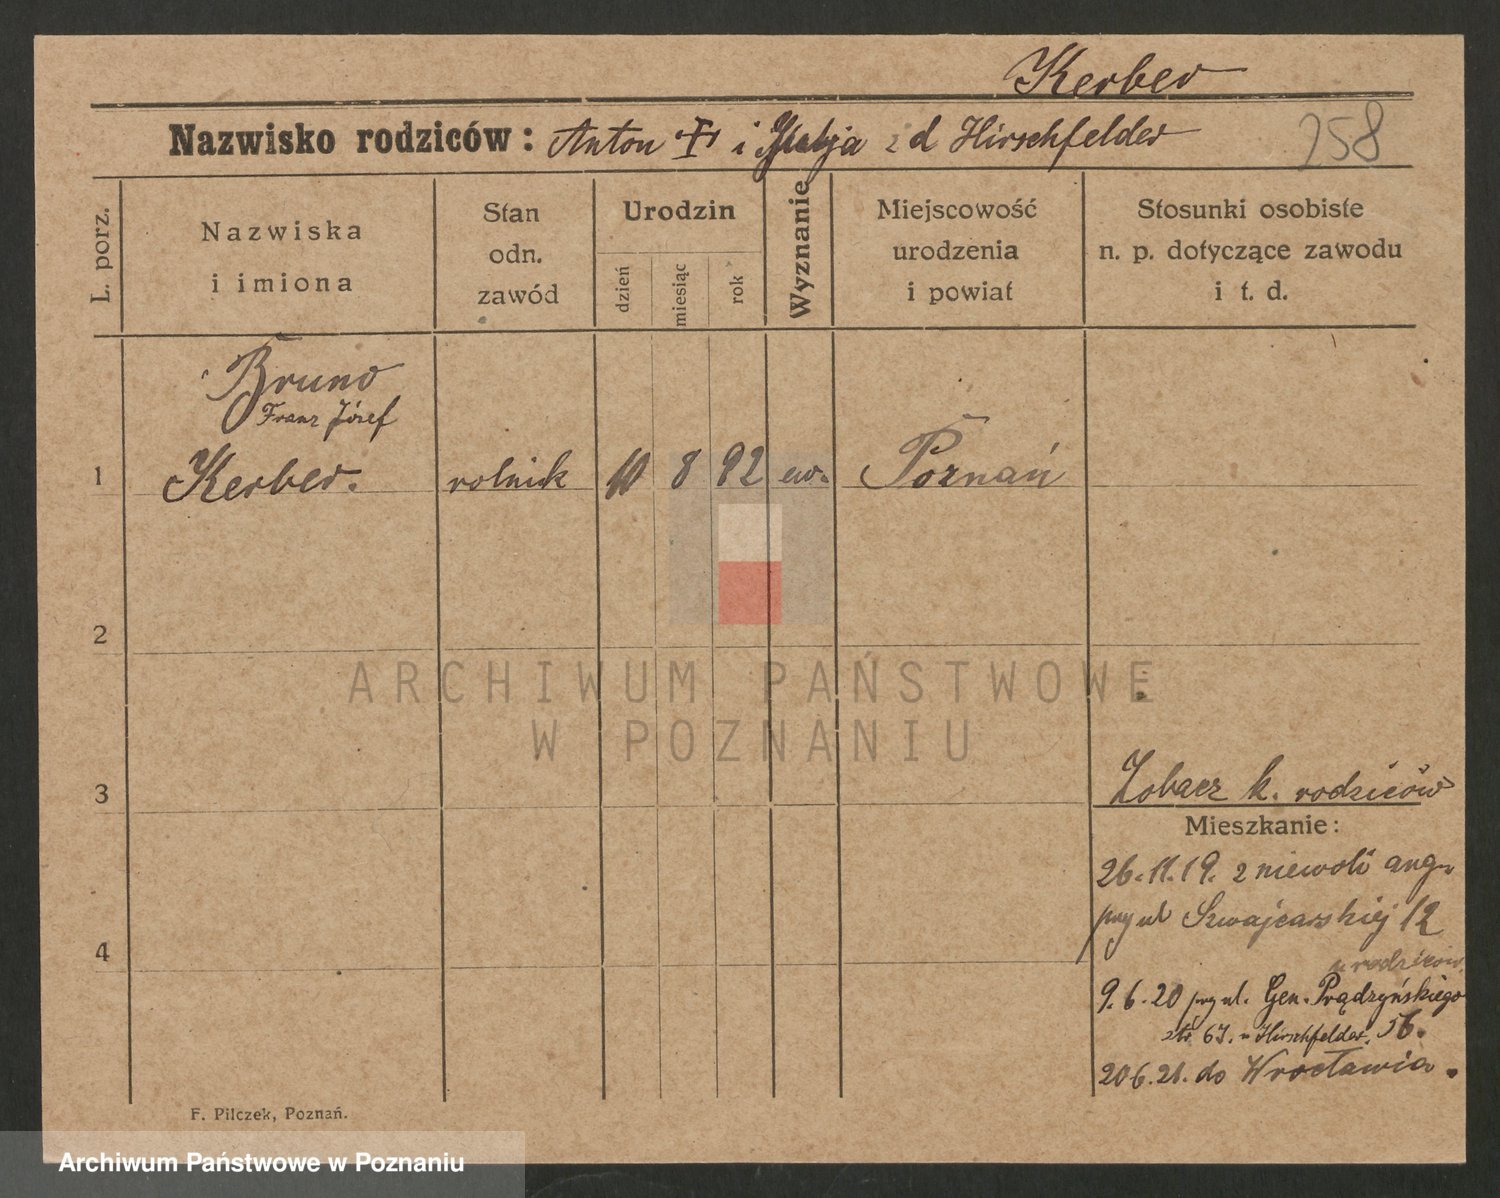 Kerber
Nazwisko rodziców: Anton i z d Hirschfelder
258
L. porz.
Nazwiska
i imiona
Stan
odn.
zawód
Urodzin
dzień
miesiąc
rok
Wyznanie
Miejscowość
urodzenia
i powiat
Stosunki osobiste
n. p. dotyczące zawodu
i t. d.
Bruno
Franz Józef
1 Kerber. rolnik 10 8 92 ew. Poznań
2
3
Zobacz k. rodziców
Mieszkanie:
26.11.19. z niewoli ang.
przy ul Szwajcarskiej 12
u rodziców
4
9.6.20 przy ul. Gen. Prądzyńskiego
str. 67. Hirschfelder. 56.
20.6.21. do Wrocławia.
F. Pilczek, Poznań.
ARCHIWUM PAŃSTWOWE
W POZNANIU
Archiwum Państwowe w Poznaniu